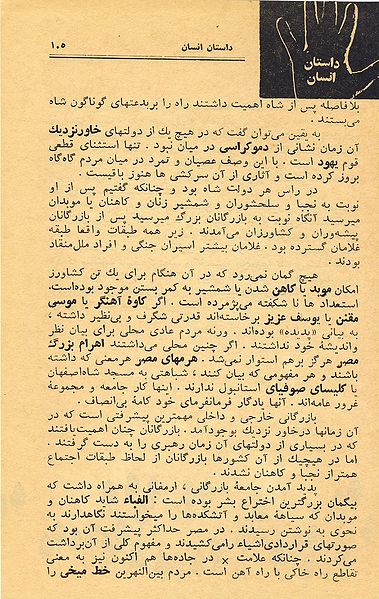 داستان
انسان
داستان انسان
۱۰۵
بلافاصله پس از شاه اهمیت داشتند راه را بربدعتهای گوناگون شاه
می‌بستند .
به یقین می‌توان گفت که در هیچ یك از دولتهای خاورنزدیك
آن زمان نشانی از دموکراسی در میان نبود . تنها استثنای قطعی
قوم یهود است . با این وصف عصیان و تمرد در میان مردم گاه‌گاه
بروز کرده است و آثاری از آن سرکشی ها هنوز باقیست .
در راس هر دولت شاه بود و چنانکه گفتیم پس از او
نوبت به نجبا و سلحشوران و شمشیر زنان و کاهنان یا موبدان
میرسید آنگاه نوبت به بازرگانان بزرگ میرسید پس از بازرگانان
پیشه‌وران و کشاورزان می‌آمدند . زیر همه طبقات واقعا طبقه
غلامان گسترده بود . غلامان بیشتر اسیران جنگی و افراد ملل‌منقاد
بودند .
هیچ گمان نمی‌رود که در آن هنگام برای یك تن کشاورز
امکان موبد یا کاهن شدن یا شمشیر به کمر بستن موجود بوده‌است.
استعداد ها نا شکفته می‌پژمرده است . اگر کاوهٔ آهنگر یا موسی
مقنن یا یوسف عزیز برخاسته‌اند قدرتی شگرف و بی‌نظیر داشته ،
به بیانی «پدیده» بوده‌اند . ورنه مردم عادی محلی برای بیان نظر
واندیشهٔ خود نداشتند . اگر چنین محلی می‌داشتند اهرام بزرگ
مصر هرگز برهم استوار نمی‌شد . هرمهای مصر هرمعنی که داشته
باشند و هر مفهومی که بیان کنند ؛ شباهتی به مسجد شاه‌اصفهان
یا کلیسای صوفیای استانبول ندارند . اینها کار جامعه و مجموعهٔ
غرور عامه‌اند . آنها یادگار فرمانفرمای خود کامهٔ بی‌انصاف .
بازرگانی خارجی و داخلی مهمترین پیشرفتی است که در
آن زمانها درخاور نزدیك بوجودآمد . بازرگانان چنان اهمیت‌یافتند
که در بسیاری از دولتهای آن زمان رهبری را به دست گرفتند .
اما در هیچیك از آن کشورها بازرگانان از لحاظ طبقات اجتماع
همتراز نجبا و کاهنان نشدند .
پدید آمدن جامعهٔ بازرگانی ، ارمغانی به همراه داشت که
بیگمان بزرگترین اختراع بشر بوده است : الفباء شاید کاهنان و
موبدان که سیاههٔ معابد و آتشکده‌ها را میخواستند نگاهدارند به
نحوی به نوشتن رسیدند . در مصر حداکثر پیشرفت آن بود که
صورتهای قراردادی‌اشیاء رامی‌کشیدند و مفهوم کلی از آن‌برداشت
می‌کردند . چنانکه علامت × در جاده‌ها هم اکنون نیز به معنی
تقاطع راه خاکی با راه آهن است . مردم بین‌النهرین خط میخی را